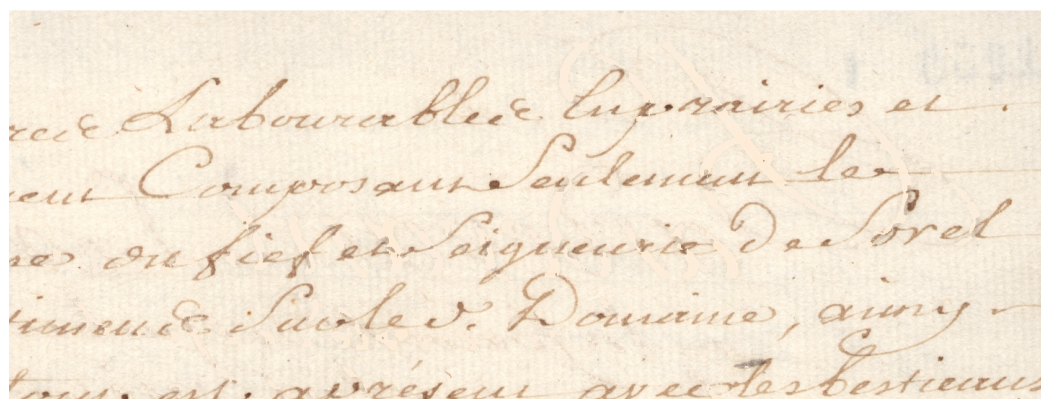 Labourable les prairies et
Composant Seulement le
du fief et Seigneurie De Sorel
Sur led. Domaine, ainsy
est. apresent avec les bestiaux